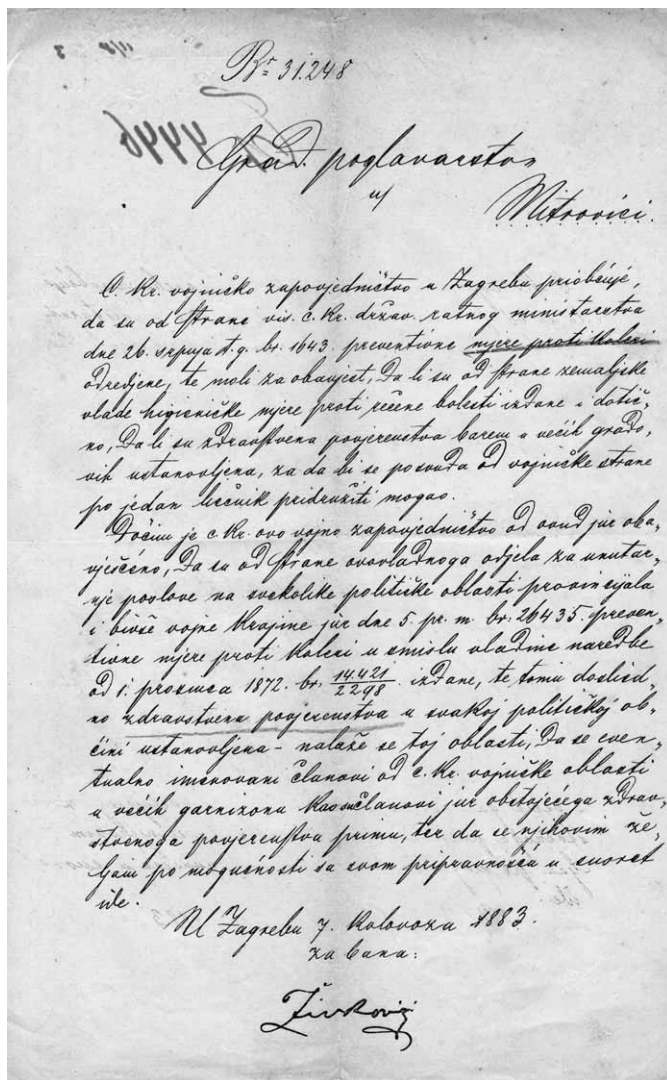 Br 31.248
4446
Grad. poglavarstvu
u
Mitrovici.
C. kr. vojničko zapovjedničtvo u Zagrebu priobćuje,
da su od strane vis. c. kr. držav. ratnog ministarstva
dne 26. srpnja t. g. br. 1643. preventivne mjere proti koleri
odredjene, te moli za obavjest, da li su od strane zemaljske
vlade higieničke mjere proti rečene bolesti izdane i dotič-
no, da li su zdravstvena povjerenstva barem u većih grado-
vih ustanovljena, za da bi se posvuda od vojničke strane
po jedan liečnik pridružiti mogao.
Dočim je c. kr. ovo vojno zapovjedničtvo od ovud jur oba-
vješćeno, da su od strane ovovladnoga odjela za unutar-
nje poslove na svekolike političke oblasti provincijala
i bivše vojne krajine jur dne 5. pr. m. br. 26435. preven-
tivne mjere proti koleri u smislu vladine naredbe
od 1. prosinca 1872. br. 14.421/2298 izdane, te tomu dosljed-
no zdravstvena povjerenstva u svakoj političkoj ob-
ćini ustanovljena - nalaže se toj oblasti, da se even-
tualno imenovani članovi od c. kr. vojničke oblasti
u većih garnizonu kao članovi jur obstojećega zdrav-
stvenoga povjerenstva primu, ter da se njihovim že-
ljam po mogućnosti sa svom pripravnošću u susret
ide.
U Zagrebu 7. kolovoza 1883.
za bana:
Živković